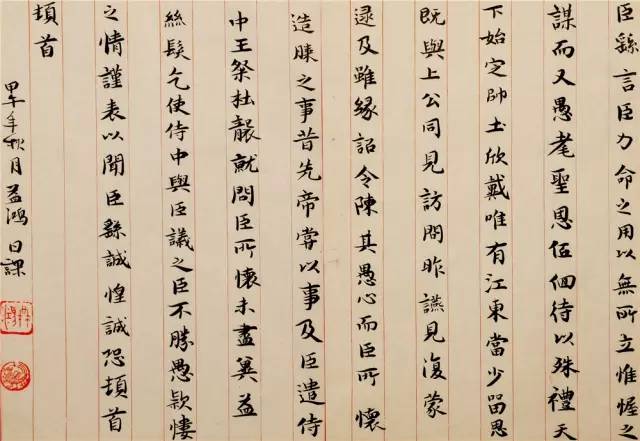 臣繇言臣力命之用以無所立惟幄之
謀而又愚耄聖恩低佪待以殊禮天
下始定帥土欣戴唯有江東當少留思
既與上公同見訪問昨讌見復蒙
逮及雖緣詔令陳其愚心而臣所懷
造膝之事昔先帝嘗以事及臣遣侍
中王粲杜襲就問臣所懷未盡冀益
絲髮乞使侍中與臣議之臣不勝愚款悽
之情謹表以聞臣繇誠惶誠恐頓首
頓首
甲午年秋月益鴻日課